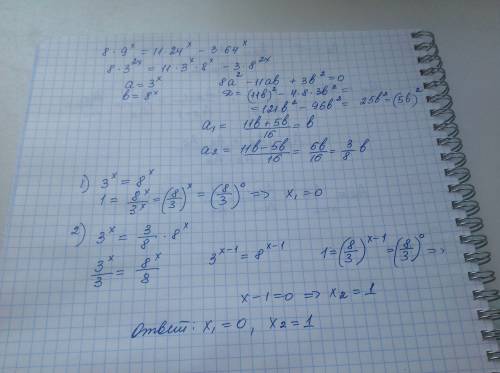 8·9ˣ = 11·24ˣ − 3·64ˣ
8·3²ˣ = 11·3ˣ·8ˣ − 3·8²ˣ
a = 3ˣ
b = 8ˣ
8a² − 11ab + 3b² = 0
D = (11b)² − 4·8·3b² =
= 121b² − 96b² = 25b² = (5b)²
a₁ = (11b + 5b)/16 = b
a₂ = (11b − 5b)/16 = 6b/16 = 3/8 b
1) 3ˣ = 8ˣ
1 = 8ˣ/3ˣ = (8/3)ˣ = (8/3)⁰ => x₁ = 0
2) 3ˣ = 3/8 · 8ˣ
3ˣ/3 = 8ˣ/8    3ˣ⁻¹ = 8ˣ⁻¹    1 = (8/3)ˣ⁻¹ = (8/3)⁰ =>
x − 1 = 0 => x₂ = 1
Ответ: x₁ = 0, x₂ = 1